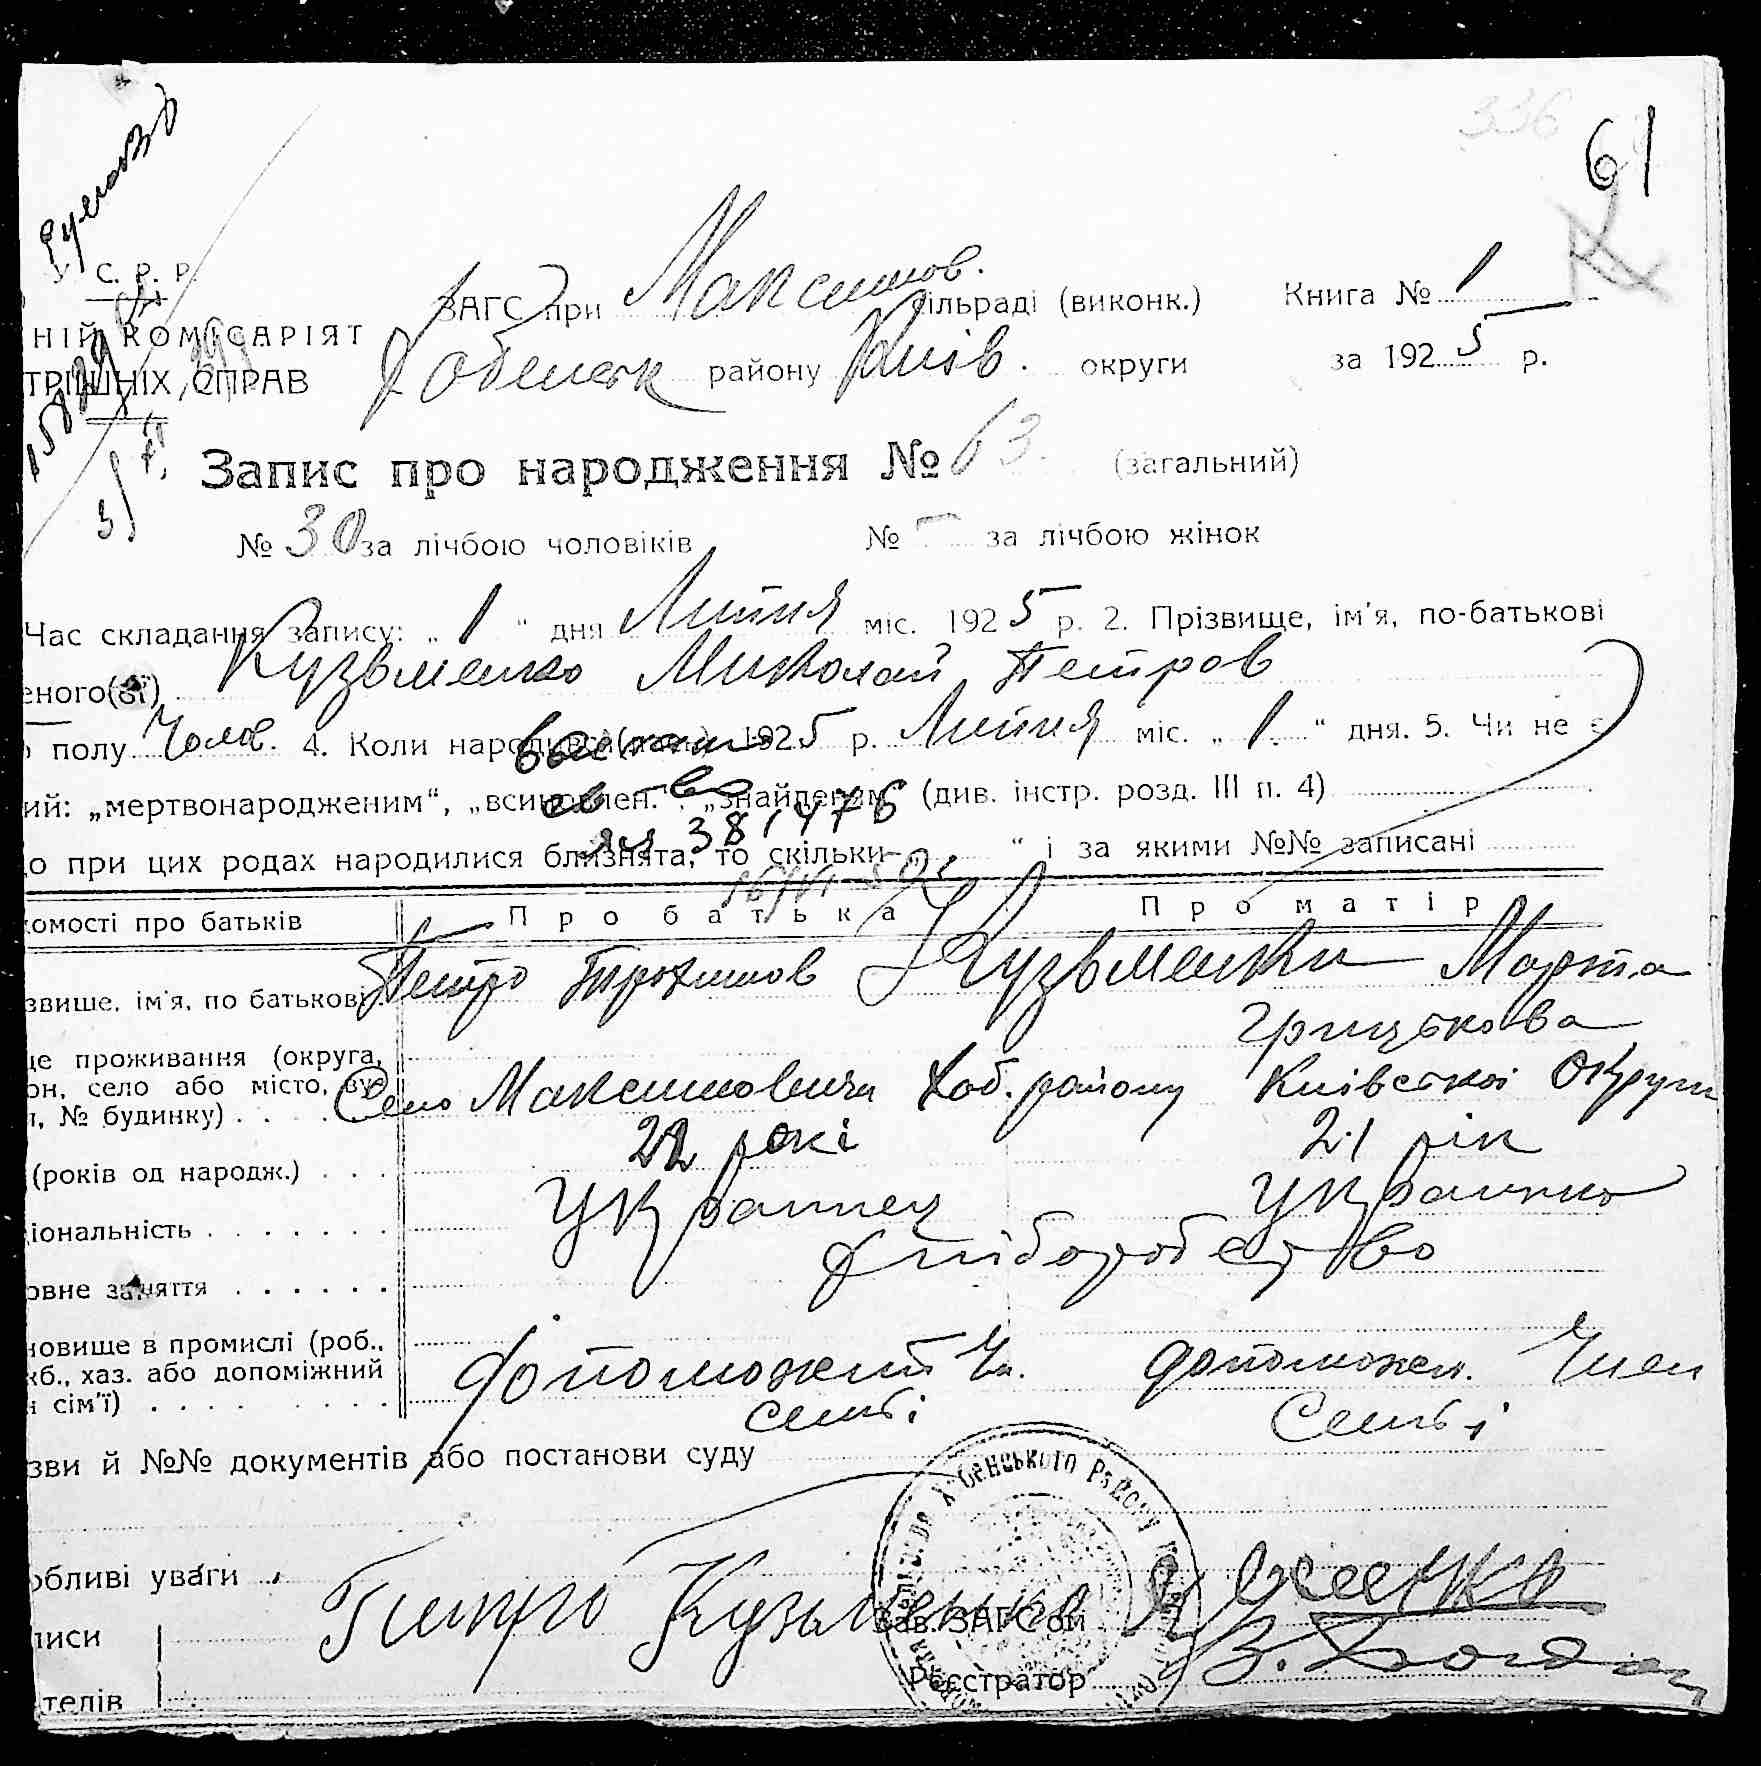 336
61
У. С. Р. Р.
ЗАГС при Максимов. сільраді (виконк.) Книга № 1
НІЙ КОМІСАРІЯТ
ТРІШНІХ СПРАВ
Хабенськ району Київ. округи за 1925 р.
Запис про народження № 63. (загальний)
№ 30 за лічбою чоловіків № — за лічбою жінок
Час складання запису: „ 1 “ дня Липня міс. 1925 р. 2. Прізвище, ім'я, по-батькові
еного(ої) Кузьменко Миколай Петров
полу Чолов. 4. Коли народився(лась) 1925 р. Липня міс. „ 1. “ дня. 5. Чи не є
ий: „мертвонародженим“, „всиновлен.“, „знайденим“ (див. інстр. розд. III п. 4)
381476
о при цих родах народилися близнята, то скільки „ “ і за якими №№ записані
омості про батьків Про батька Про матір
звище, ім'я, по батькові Петро Трохимов Кузьменки Марта
Грицькова
це проживання (округа,
он, село або місто, ву-
, № будинку) . . Село Максимовичи Хаб. району Київської Округи
(років од народж.) . . . 22 рокі 21 рік
ціональність . . . . . . . Українец Українка
овне заняття . . . . . . Хліборобство
новище в промислі (роб.,
жб., хаз. або допоміжний
н сім'ї) . . . . . . . . . допоможний Чл. допоможн. Член
семьі Семьі
зви й №№ документів або постанови суду
обливі уваги
писи Петро Кузьменко
Зав. ЗАГС'ом
Реєстратор
телів